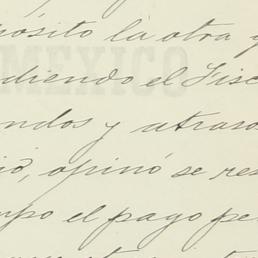 pósito la otra y
diendo el Fisc
MEXICO
ndos y atraso
ió, opinó se res
mpo el pago pe